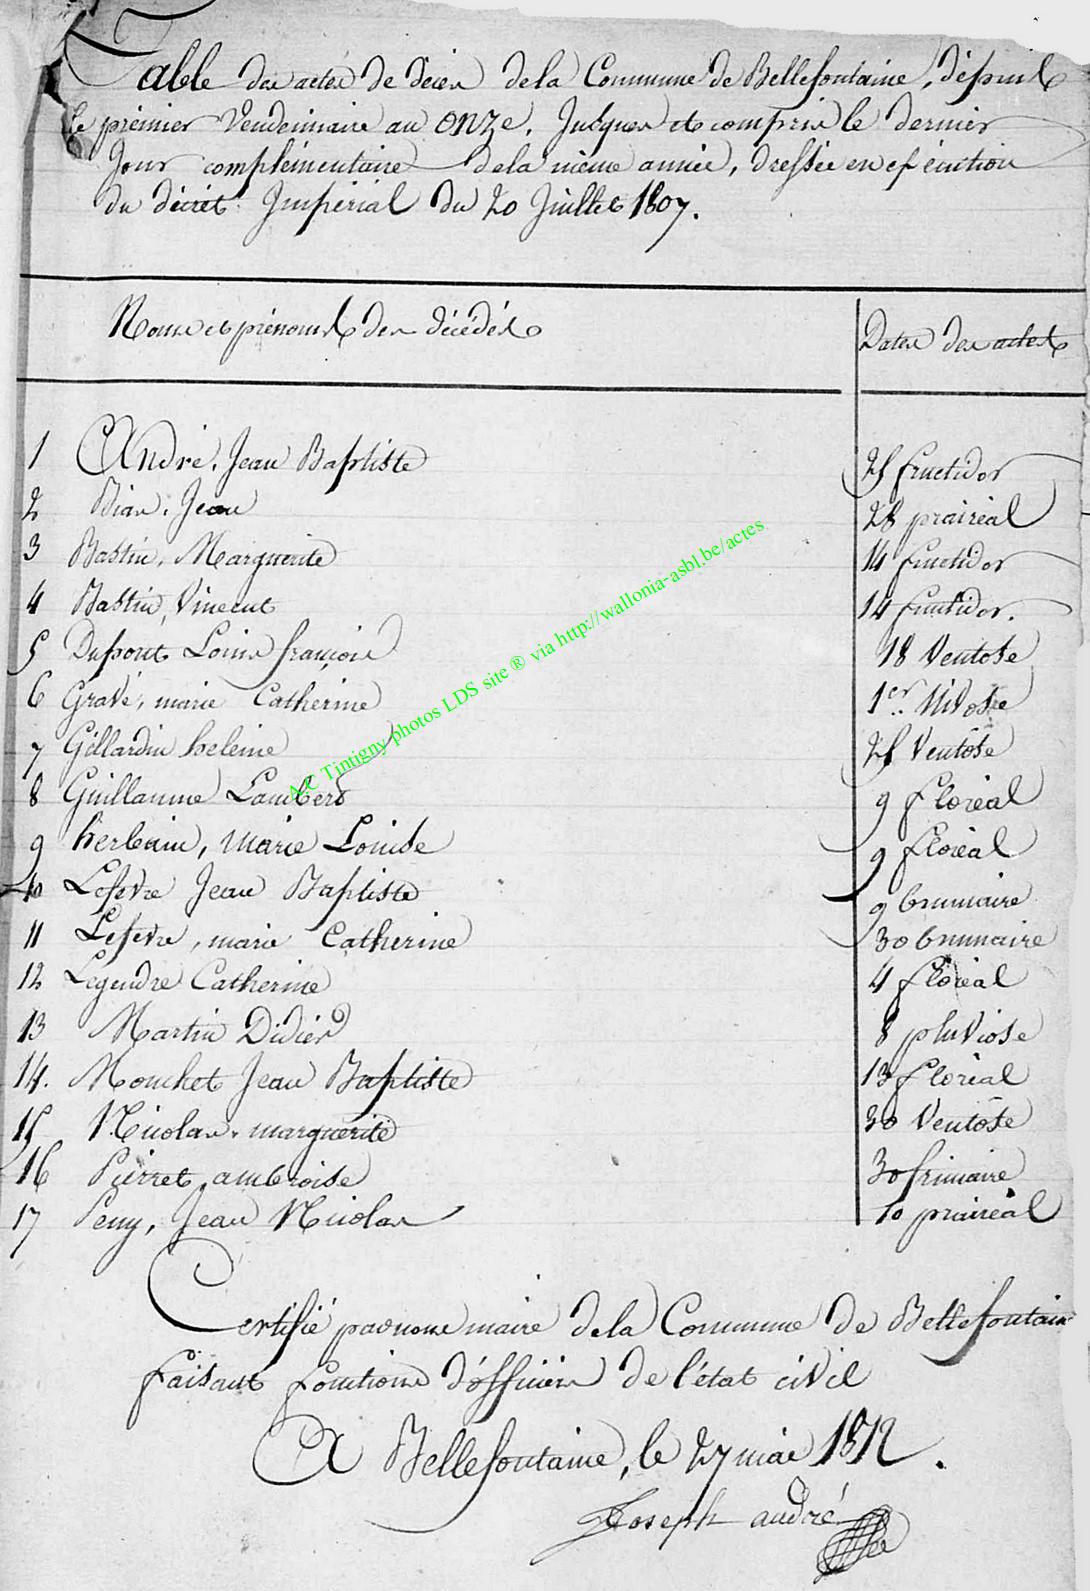 Table des actes de décès de la Commune de Bellefontaine, dépuis
le prémier Vendemiaire an onze, Jusques et compris le dernier
Jour complémentaire de la même année, dressée en exécution
du décret Impérial du 20 Juillet 1807.
Noms et prénoms des décédés
Dates des actes
1 André, Jean Baptiste 25 fructidor
2 Bian, Jean 28 prairéal
3 Bastin, Marguerite 14 fructidor
4 Bastin, Vincent 14 fructidor.
5 Dupont Louis françois 18 Ventose
6 Gravé, marie Catherine 1er. Nivose
7 Gillardin heleine 25 Ventôse
8 Guillaume Lambert 9 floréal
A.C Tintigny photos LDS site ® via http://wallonia-asbl.be/actes
9 herbain, marie Louise 9 floréal
10 Lefevre Jean Baptiste 9 brumaire
11 Lefevre, marie Catherine 30 brumaire
12 Legendre Catherine 4 floréal
13 Martin Didier 8 pluViose
14. Mouchet Jean Baptiste 13 floréal
15 Nicolas, marguerite 30 Ventôse
16 Pierret ambroise 30 frimaire
17 Peny, Jean Nicolas 10 prairéal
Certifié par nous maire de la Commune de Bellefontaine
faisant fonctions d'officier de l'état civil
A Bellefontaine, le 27 mai 1812.
Joseph andré